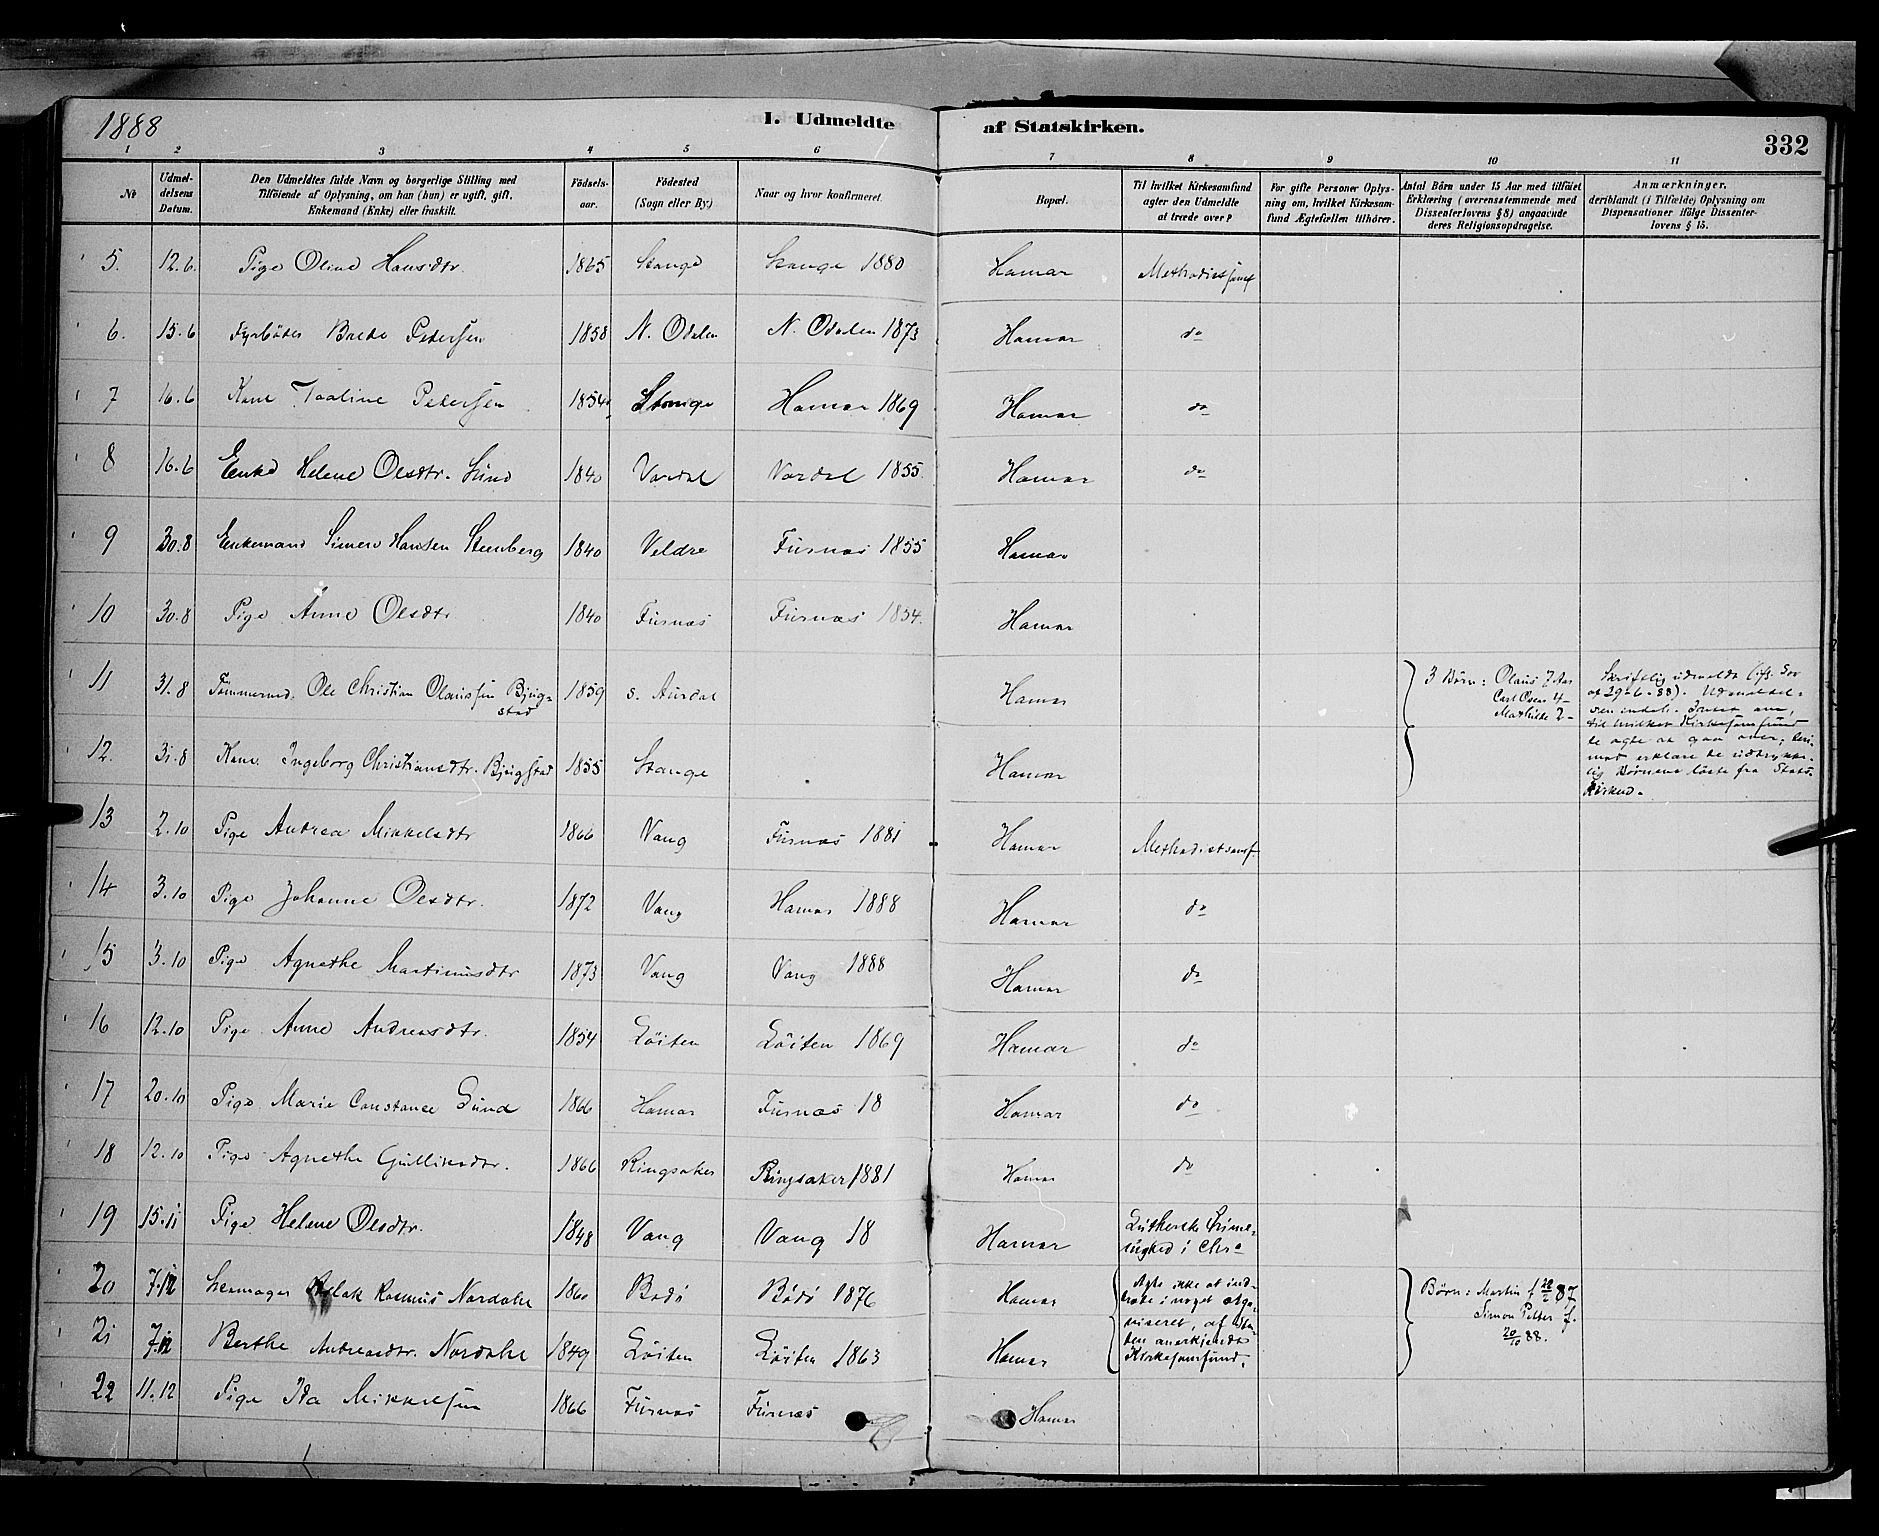 1888
I. Udmeldte af Statskirken.
332
1 2 3 4 5 6 7 8 9 10 11
No
Udmel-
delsens
Datum.
Den Udmeldtes fulde Navn og borgerlige Stilling med
Tilføiende af Oplysning, om han (hun) er ugift, gift,
Enkemand (Enke) eller fraskilt.
Fødsels-
aar.
Fødested
(Sogn eller By)
Naar og hvor konfirmeret.
Bopæl.
Til hvilket Kirkesamfund
agter den Udmeldte
at træde over?
For gifte Personer Oplys-
ning om, hvilket Kirkesam-
fund Ægtefællen tilhører.
Antal Børn under 15 Aar med tilføiet
Erklæring (overensstemmende med
Dissenterlovens § 8) angaaende
deres Religionsopdragelse.
Anmærkninger,
deriblandt (i Tilfælde) Oplysning om
Dispensationer ifølge Dissenter-
lovens § 15.
5. 12.6. Pige Oline Hansdtr. 1865 Stange Stange 1880 Hamar Methodistsamf
6. 15.6 Fyrbøder Brede Petersen 1858 N. Odalen N. Odalen 1873 Hamar do
7 16.6 Kone Taaline Petersen 1854 Stange Hamar 1869 Hamar do
8 16.6 Enke Helene Olsdtr. Lund 1840 Vardal Vardal 1855 Hamar do
9 30.8 Enkemand Simen Hansen Steenberg 1840 Veldre Furnæs 1855 Hamar
10 30.8 Pige Anne Olsdtr 1840 Furnæs Furnæs 1854. Hamar
11 31.8 Tømmermd. Ole Christian Olaussen Bjug-
stad 1859 S. Aurdal Hamar
3 Børn: Olaus 7 Aar
Carl Oscar 4 –
Mathilde 2 –
Skriftlig udmeldt
af 29-6-88). Udmeldel-
sen indeh. Intet om,
til hvilket Kirkesamfund
de agte at gaa over, deri-
mod erklære de udtrykke-
lig Børnene løste fra Stats-
kirken.
12. 31.8 Kone Ingeborg Christiansdtr. Bjugstad 1855 Stange Hamar
13 2.10 Pige Andrea Mikkelsdtr 1866 Vang Furnæs 1881 Hamar Methodistsamf.
14 3.10 Pige Johanne Olsdtr. 1872 Vang Hamar 1888 Hamar do
15 3.10 Pige Agnethe Martinusdtr 1873 Vang Vang 1888 Hamar do
16 12.10 Pige Anne Andreasdtr. 1854 Løiten Løiten 1869 Hamar do
17 20.10 Pige Marie Constance Lund 1866 Hamar Furnæs 18 Hamar do
18 12.10 Pige Agnethe Gulliksdtr. 1866 Ringsaker Ringsaker 1881 Hamar do
19 15.11 Pige Helene Olsdtr. 1848 Vang Vang 18 Hamar Lutherske Frime-
nighed i Chra
20 7.12 Rasmus Nordahl 1860 Bodø Bodø 1876 Hamar
Agte ikke at ind-
træde i noget orga-
niseret, af Sta-
ten anerkjendt
Kirkesamfund.
Børn: Martin f 22/2 87
Simon Petter f.
20/10 88.
21 7.12 Berthe Andreasdtr. Nordahl 1849 Løiten Løiten 1863 Hamar
22 11.12 Pige Ida Mikkelsen 1866 Furnæs Furnæs Hamar